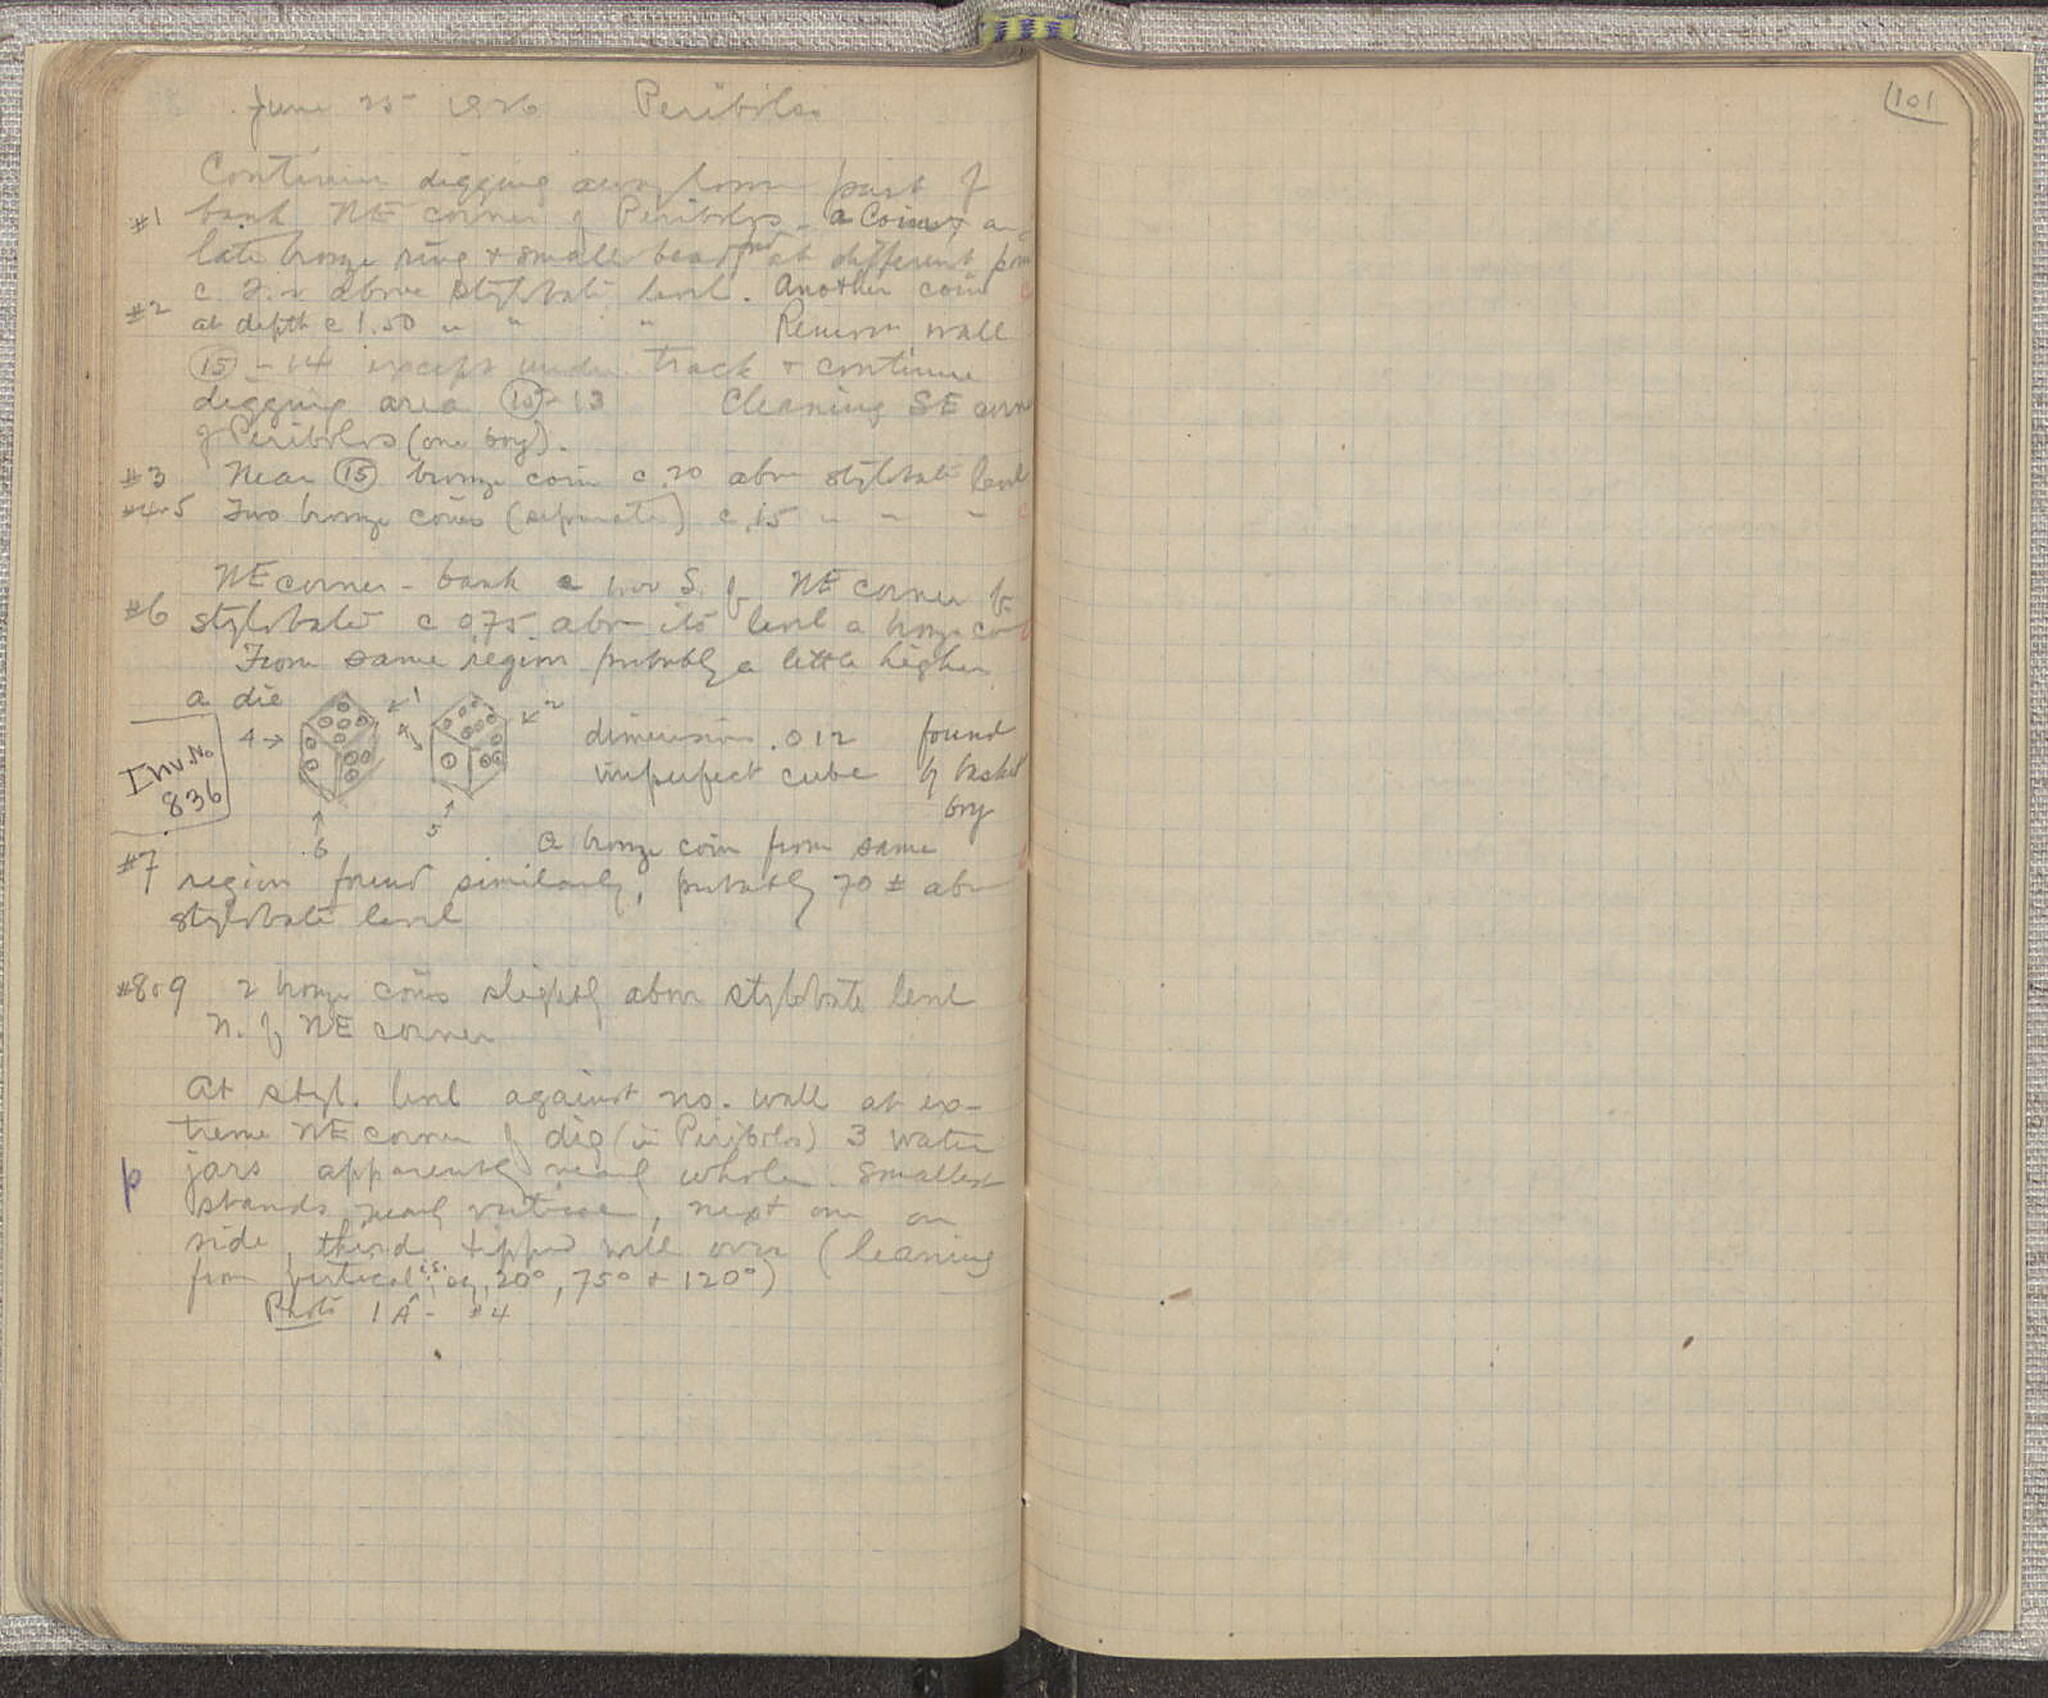 June 25 1926 Peribolos
Continue digging away lower part of
#1 bank NE corner of Peribolos - a Coin, a
late bronze ring & small bead fnd at different
c. 2.2 above stylobate level. Another coin
#2 at depth c 1.50 " " " Remove wall
15 - 14 except under track & continue
digging area 15 - 13 Cleaning SE corner
of Peribolos (one boy).
#3 Near 15 bronze coin c .20 above stylobate level
#4-5 Two bronze coins (separate) c .15 " " "
NE corner - bank c S. of NE corner of
#6 stylobate c 0.75 above its level a bronze coin
From same region probably a little higher
a die
1
2
4
4
Inv. No
836
dimension .012 found
imperfect cube by basket
boy
6
5
a bronze coin from same
#7 region found similarly, probably 70 ± above
stylobate level
#8 & 9 2 bronze coins slightly above stylobate level
N. of NE corner
At styl. level against no. wall at ex-
treme NE corner of dig (in Peribolos) 3 water
p jars apparently nearly whole. Smallest
stands nearly vertical, next one on
side, third tipped well over (leaning
from vertical, 20°, 75° & 120°)
Photo 1 A - #4
101